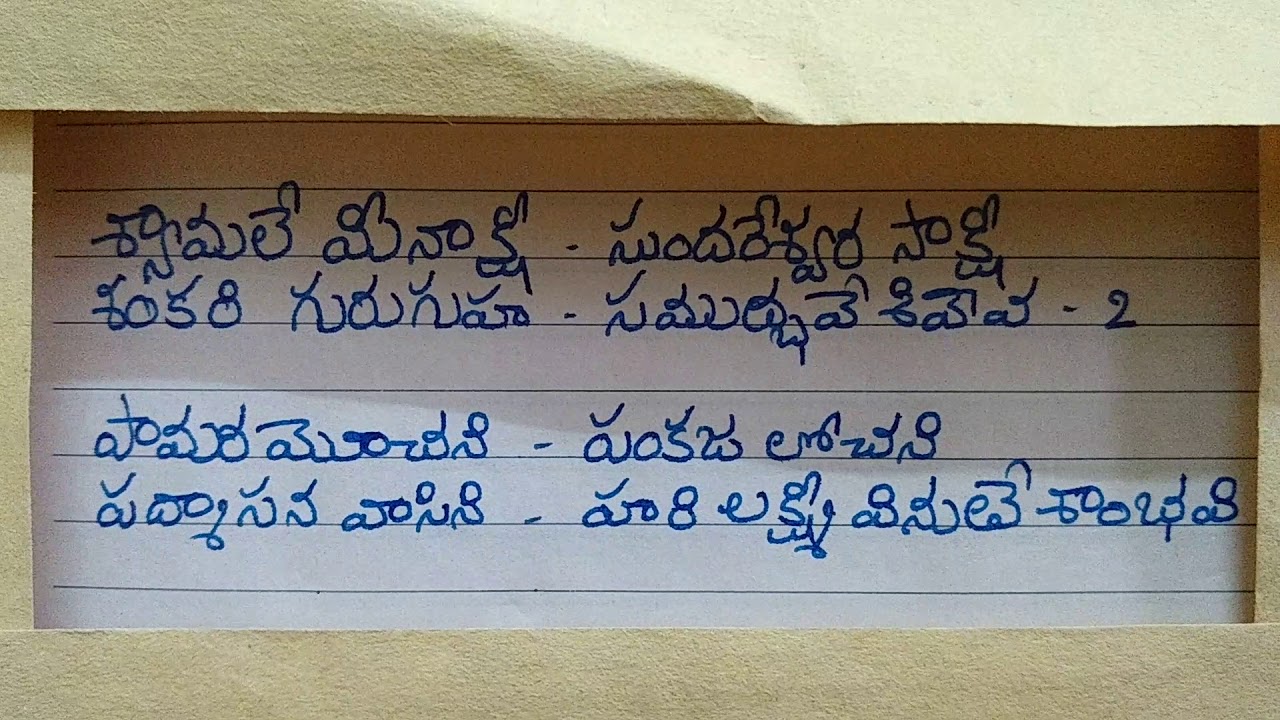 శ్యామలే మీనాక్షి - సుందరేశ్వర సాక్షి
శంకరి గురుగుహ - సముద్భవే శివేవ - 2
పామర మోచని - పంకజ లోచని
పద్మాసన వాసిని - హరి లక్ష్మీ వినుతే శాంభవి